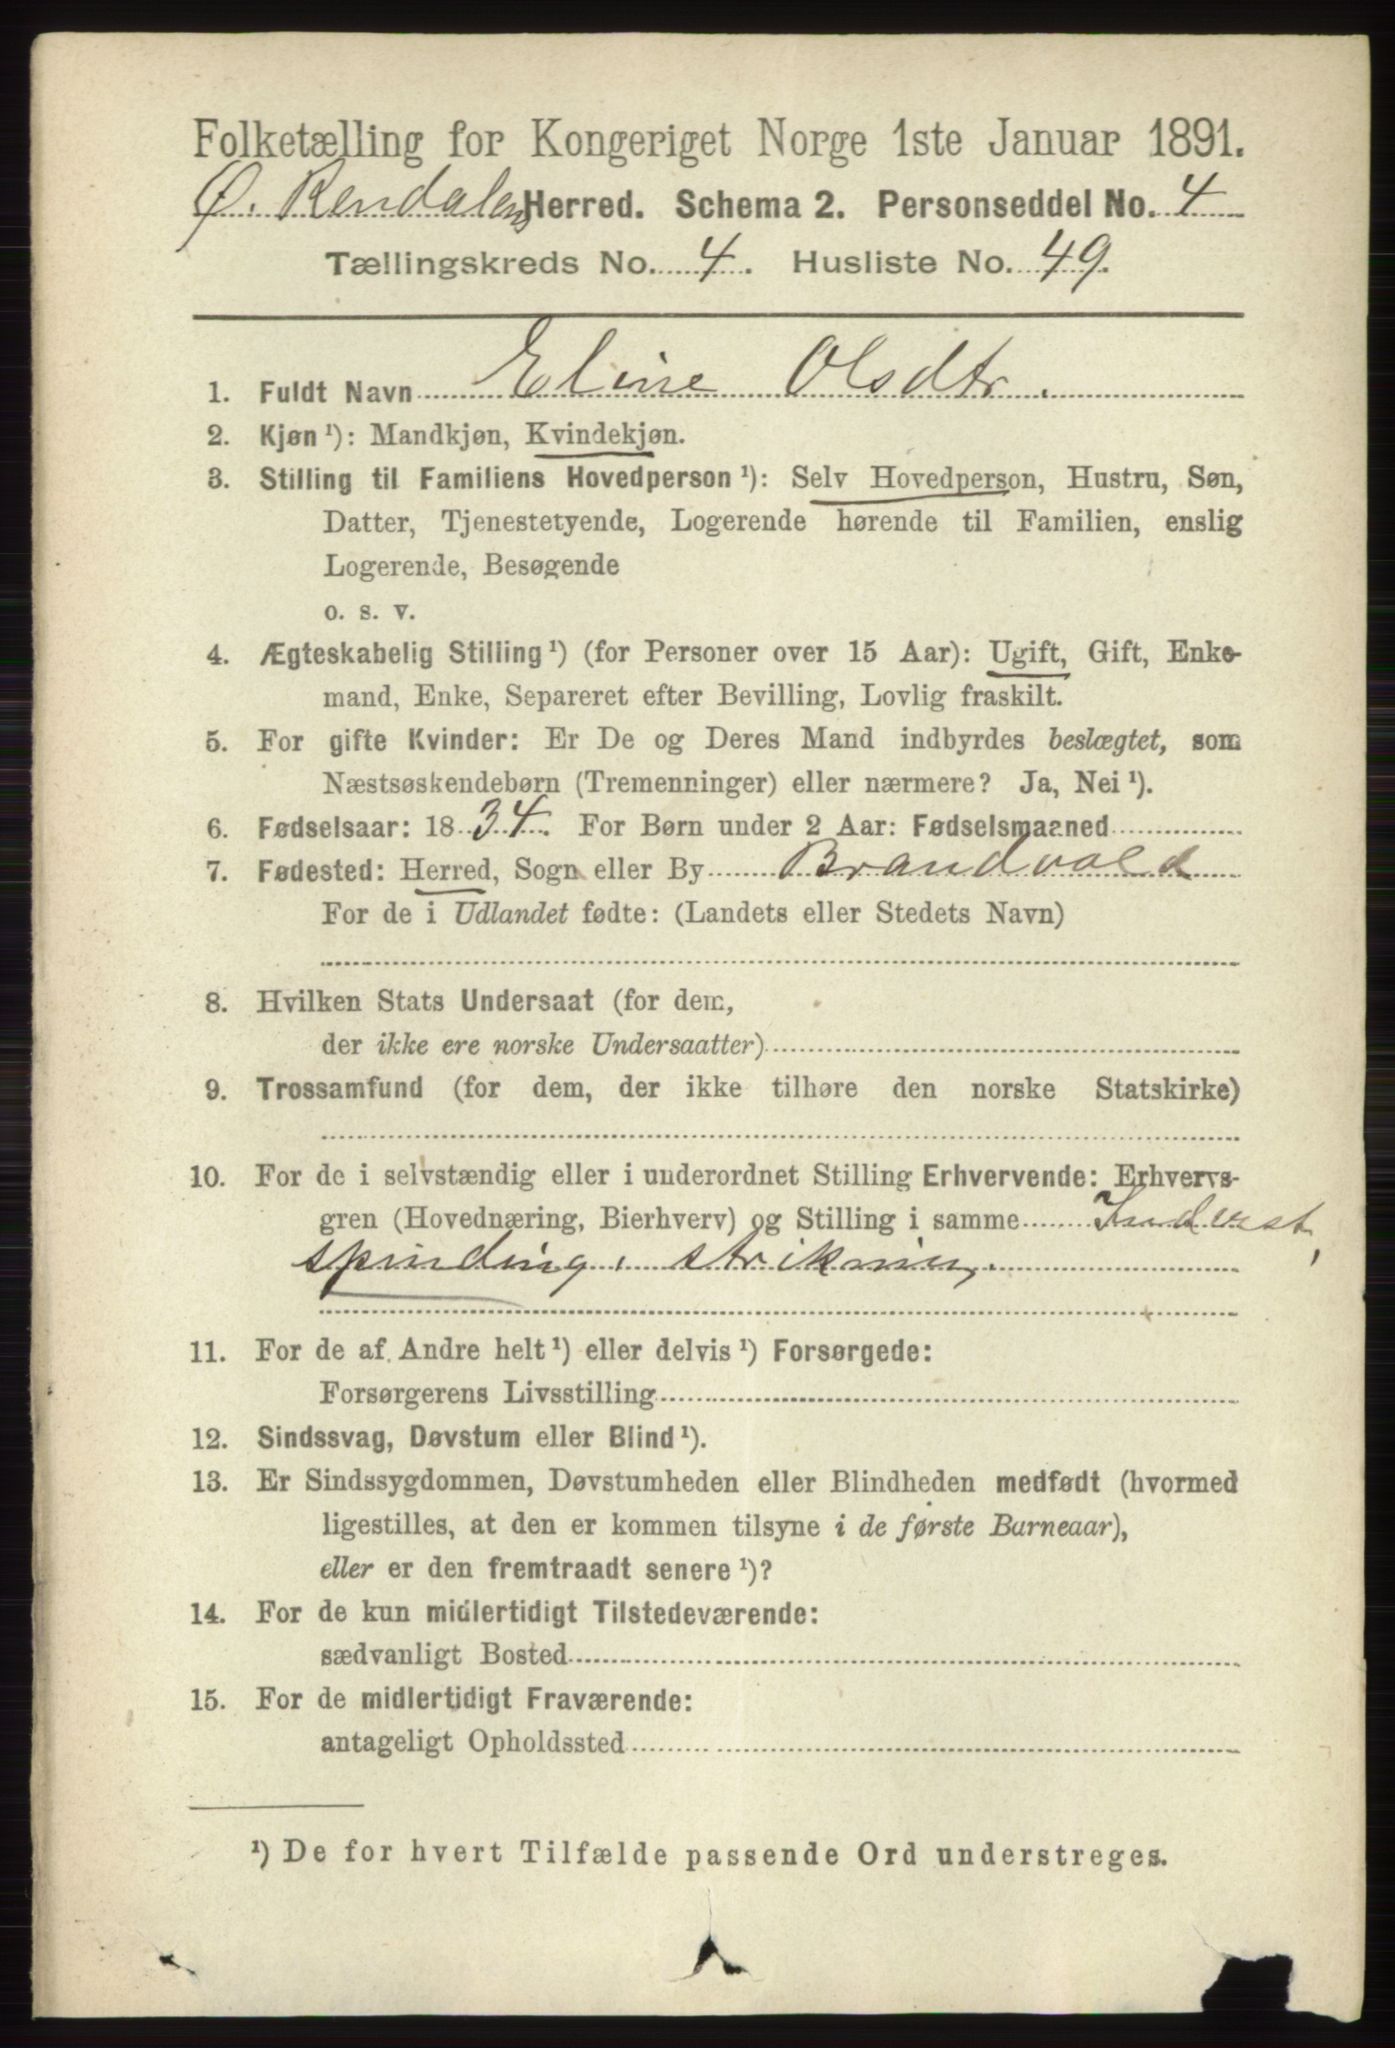 Folketælling for Kongeriget Norge 1ste Januar 1891.
Ø. Rendalens Herred. Schema 2. Personseddel No. 4
Tællingskreds No. 4. Husliste No. 49.
1. Fuldt Navn Eline Olsdtr.
2. Kjøn¹): Mandkjøn, Kvindekjøn.
3. Stilling til Familiens Hovedperson¹): Selv Hovedperson, Hustru, Søn,
Datter, Tjenestetyende, Logerende hørende til Familien, enslig
Logerende, Besøgende
o. s. v.
4. Ægteskabelig Stilling¹) (for Personer over 15 Aar): Ugift, Gift, Enke-
mand, Enke, Separeret efter Bevilling, Lovlig fraskilt.
5. For gifte Kvinder: Er De og Deres Mand indbyrdes beslægtet, som
Næstsøskendebørn (Tremenninger) eller nærmere? Ja, Nei¹).
6. Fødselsaar: 1834. For Børn under 2 Aar: Fødselsmaaned
7. Fødested: Herred, Sogn eller By Brandvold
For de i Udlandet fødte: (Landets eller Stedets Navn)
8. Hvilken Stats Undersaat (for dem,
der ikke ere norske Undersaatter)
9. Trossamfund (for dem, der ikke tilhøre den norske Statskirke)
10. For de i selvstændig eller i underordnet Stilling Erhvervende: Erhvervs-
gren (Hovednæring, Bierhverv) og Stilling i samme Inderst,
spinding, strikning.
11. For de af Andre helt¹) eller delvis¹) Forsørgede:
Forsørgerens Livsstilling
12. Sindssvag, Døvstum eller Blind¹).
13. Er Sindssygdommen, Døvstumheden eller Blindheden medfødt (hvormed
ligestilles, at den er kommen tilsyne i de første Barneaar),
eller er den fremtraadt senere¹)?
14. For de kun midlertidigt Tilstedeværende:
sædvanligt Bosted
15. For de midlertidigt Fraværende:
antageligt Opholdssted
¹) De for hvert Tilfælde passende Ord understreges.